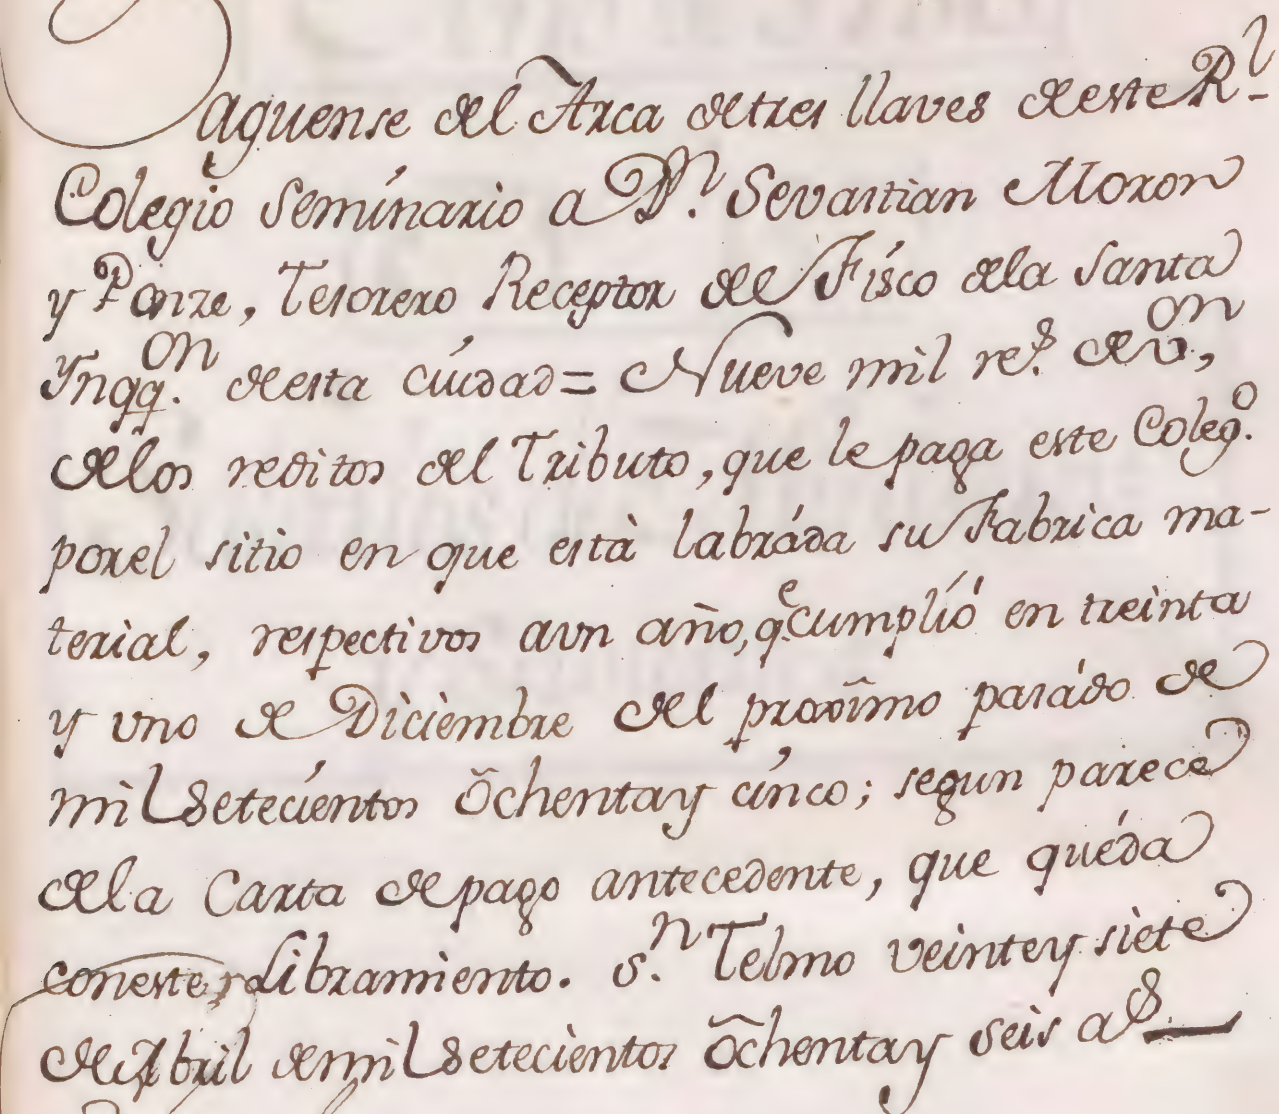 Paguense del Arca de tres llaves de este R.l
Colegio Seminario a D.n Sevastian Moron
y Ponze, Tesorero Receptor del Fisco de la Santa
Ynqq.on de esta ciudad = Nueve mil re.s de v.on,
de los reditos del Tributo, que le paga este Coleg.o
por el sitio en que està labráda su Fabrica ma-
terial, respectivos a vn año, q.e cumplió en treinta
y uno de Diciembre del proximo pasádo de
mil Setecientos ochenta y cinco; segun parece
de la Carta de pago antecedente, que quéda
con este Libramiento. S.n Telmo veinte y siete
de Abril de mil Setecientos ochenta y seis a.s